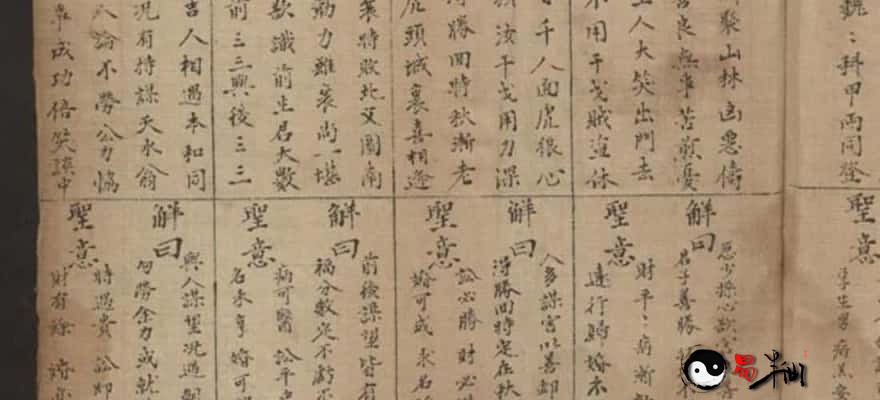 科甲兩同登
聚山林凶惡儔
善良無事苦煎憂
人大笑出門去
不用干戈賊盜休
千人面虎狼心
汝干戈用力深
得勝回時秋漸老
虎頭城裏喜相逢
衰時敗北又圖南
筋力雖衰尚一堪
欲識前生君大數
前三三與後三三
吉人相遇本和同
況有持謀天水翁
人論不勞公力恊
事成功倍笑談中
聖意
生男病
解曰
惡少操心欲害
君子善勝
聖意
財平〻病漸
遠行歸婚不
解曰
人多謀害以善卻
得勝回時定在秋
聖意
訟必勝財必
婚可成求名
解曰
前後謀望皆有
福分數定不虧
聖意
病可醫訟平
名未亨婚可
解曰
與人謀望況遇
勿勞余力或就
聖意
時遇貴訟卻
財有餘
易半仙